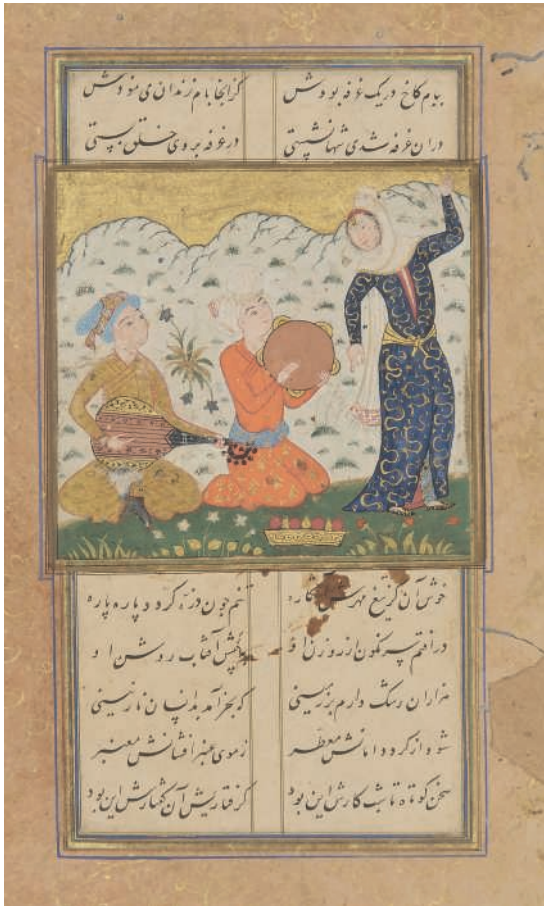 ببام کاخ در یک غرفه بودش کزانجا بام زندان می نمودش
دران غرفه شدی تنها نشستی در غرفه بروی خلق بستی
خوش آن کز تیغ مهرش تنم چون ذره گردد پاره پاره
در افتم سرنگون از روزن او به پیش آفتاب روشن او
هزاران رشک دارم بر زمینی که بخرامد بدانسان نازنینی
شود از گرد دامانش معطر ز موی عنبر افشانش معنبر
سخن کوتاه تا شب کارش این بود گرفتاریش آن گفتارش این بود